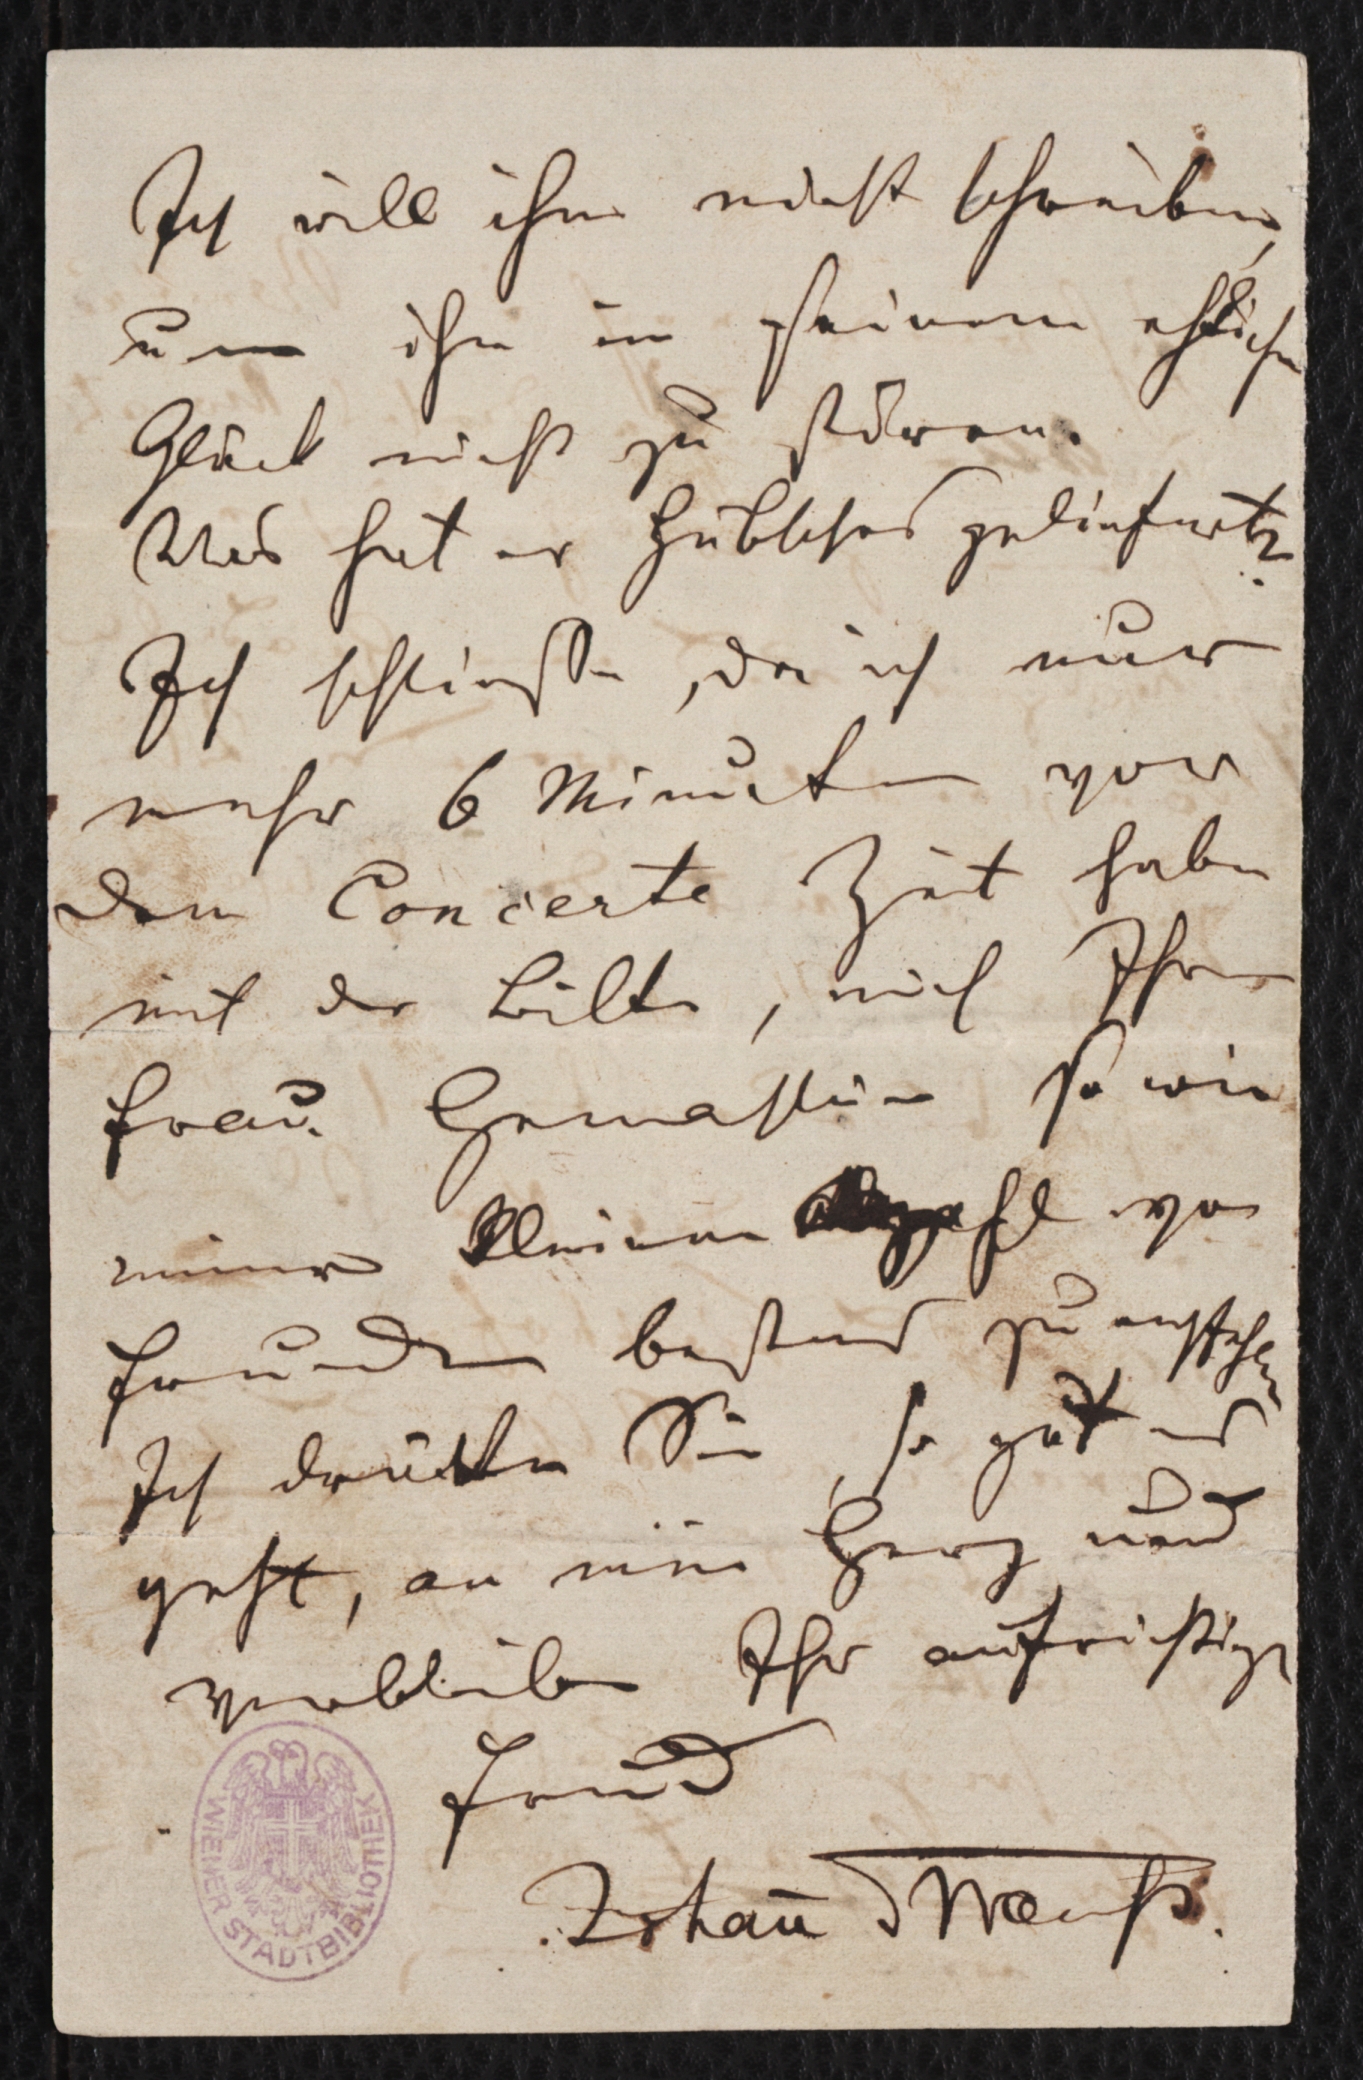 Ich will ihm nicht schreiben,
um ihn in seinem ehlichen
Glück nicht zu stören.
Was hat er Hübsches geliefert?
Ich schließe, da ich nur
mehr 6 Minuten vor
dem Concerte Zeit habe
mit der Bitte, mich Ihrer
Frau Gemahlin so wie
meiner kleinen Anzahl von
Freunden bestens zu empfehlen
Ich drücke Sie, so gut es
geht, an mein Herz und
verbleibe Ihr aufrichtiger
Freund
Johann Strauß.
WIENER STADTBIBLIOTHEK